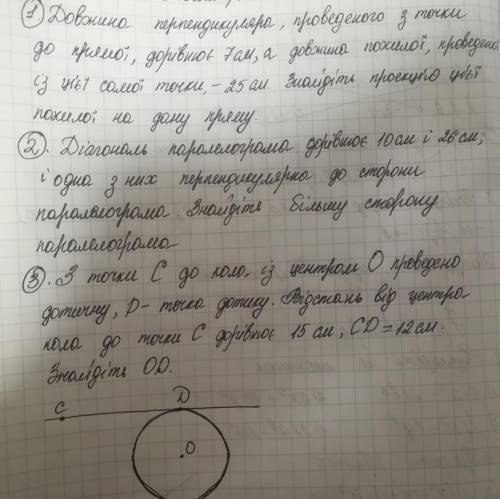 ① Довжина перпендикуляра, проведеного з точки
до прямої, дорівнює 7см, а довжина похилої, проведено
із цієї самої точки, – 25 см. Знайдіть проекцію цієї
похилої на дану пряму.
②. Діагональ паралелограма дорівнює 10 см і 26 см,
і одна з них перпендикулярна до сторони
паралелограма. Знайдіть більшу сторону
паралелограма
③. З точки С до кола із центром О проведено
дотичну, D – точка дотику. Відстань від центра
кола до точки С дорівнює 15 см, CD = 12 см.
Знайдіть OD.
C D
O